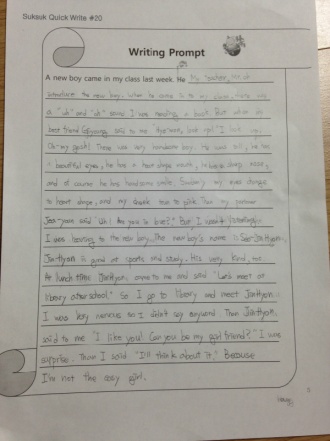 Suksuk Quick Write #20
Writing Prompt
A new boy came in my class last week. He My teacher, Mr. oh
introduce the new boy. When he come in to my class, there was
a "uh" and "oh" sound. I was reading a book. But when my
best friend said to me "Hye-won, look up!" I look up.
Oh-my gosh! There was very handsome boy. He was tall, he has
a beautiful eyes, he has a heart shape mouth, he have sharp nose,
and of course he has handsome smile. Suddenly my eyes change
to heart shape, and my cheek turn to pink. Then my partner
said "Uh! Are you in love?" But I wasn't listening.
I was hearing to the new boy. The new boy's name is Seo-JaeHyon.
JaeHyon is good at sports and study. He's very kind, too.
At lunch time JaeHyon came to me and said "Let's meet at
library after school." So I go to library and meet JaeHyon.
I was very nervous so I didn't say anyword. Then JaeHyon
said to me "I like you! Can you be my girl friend?" I was
surprise. Then I said "I'll think about it." Because
I'm not the easy girl.